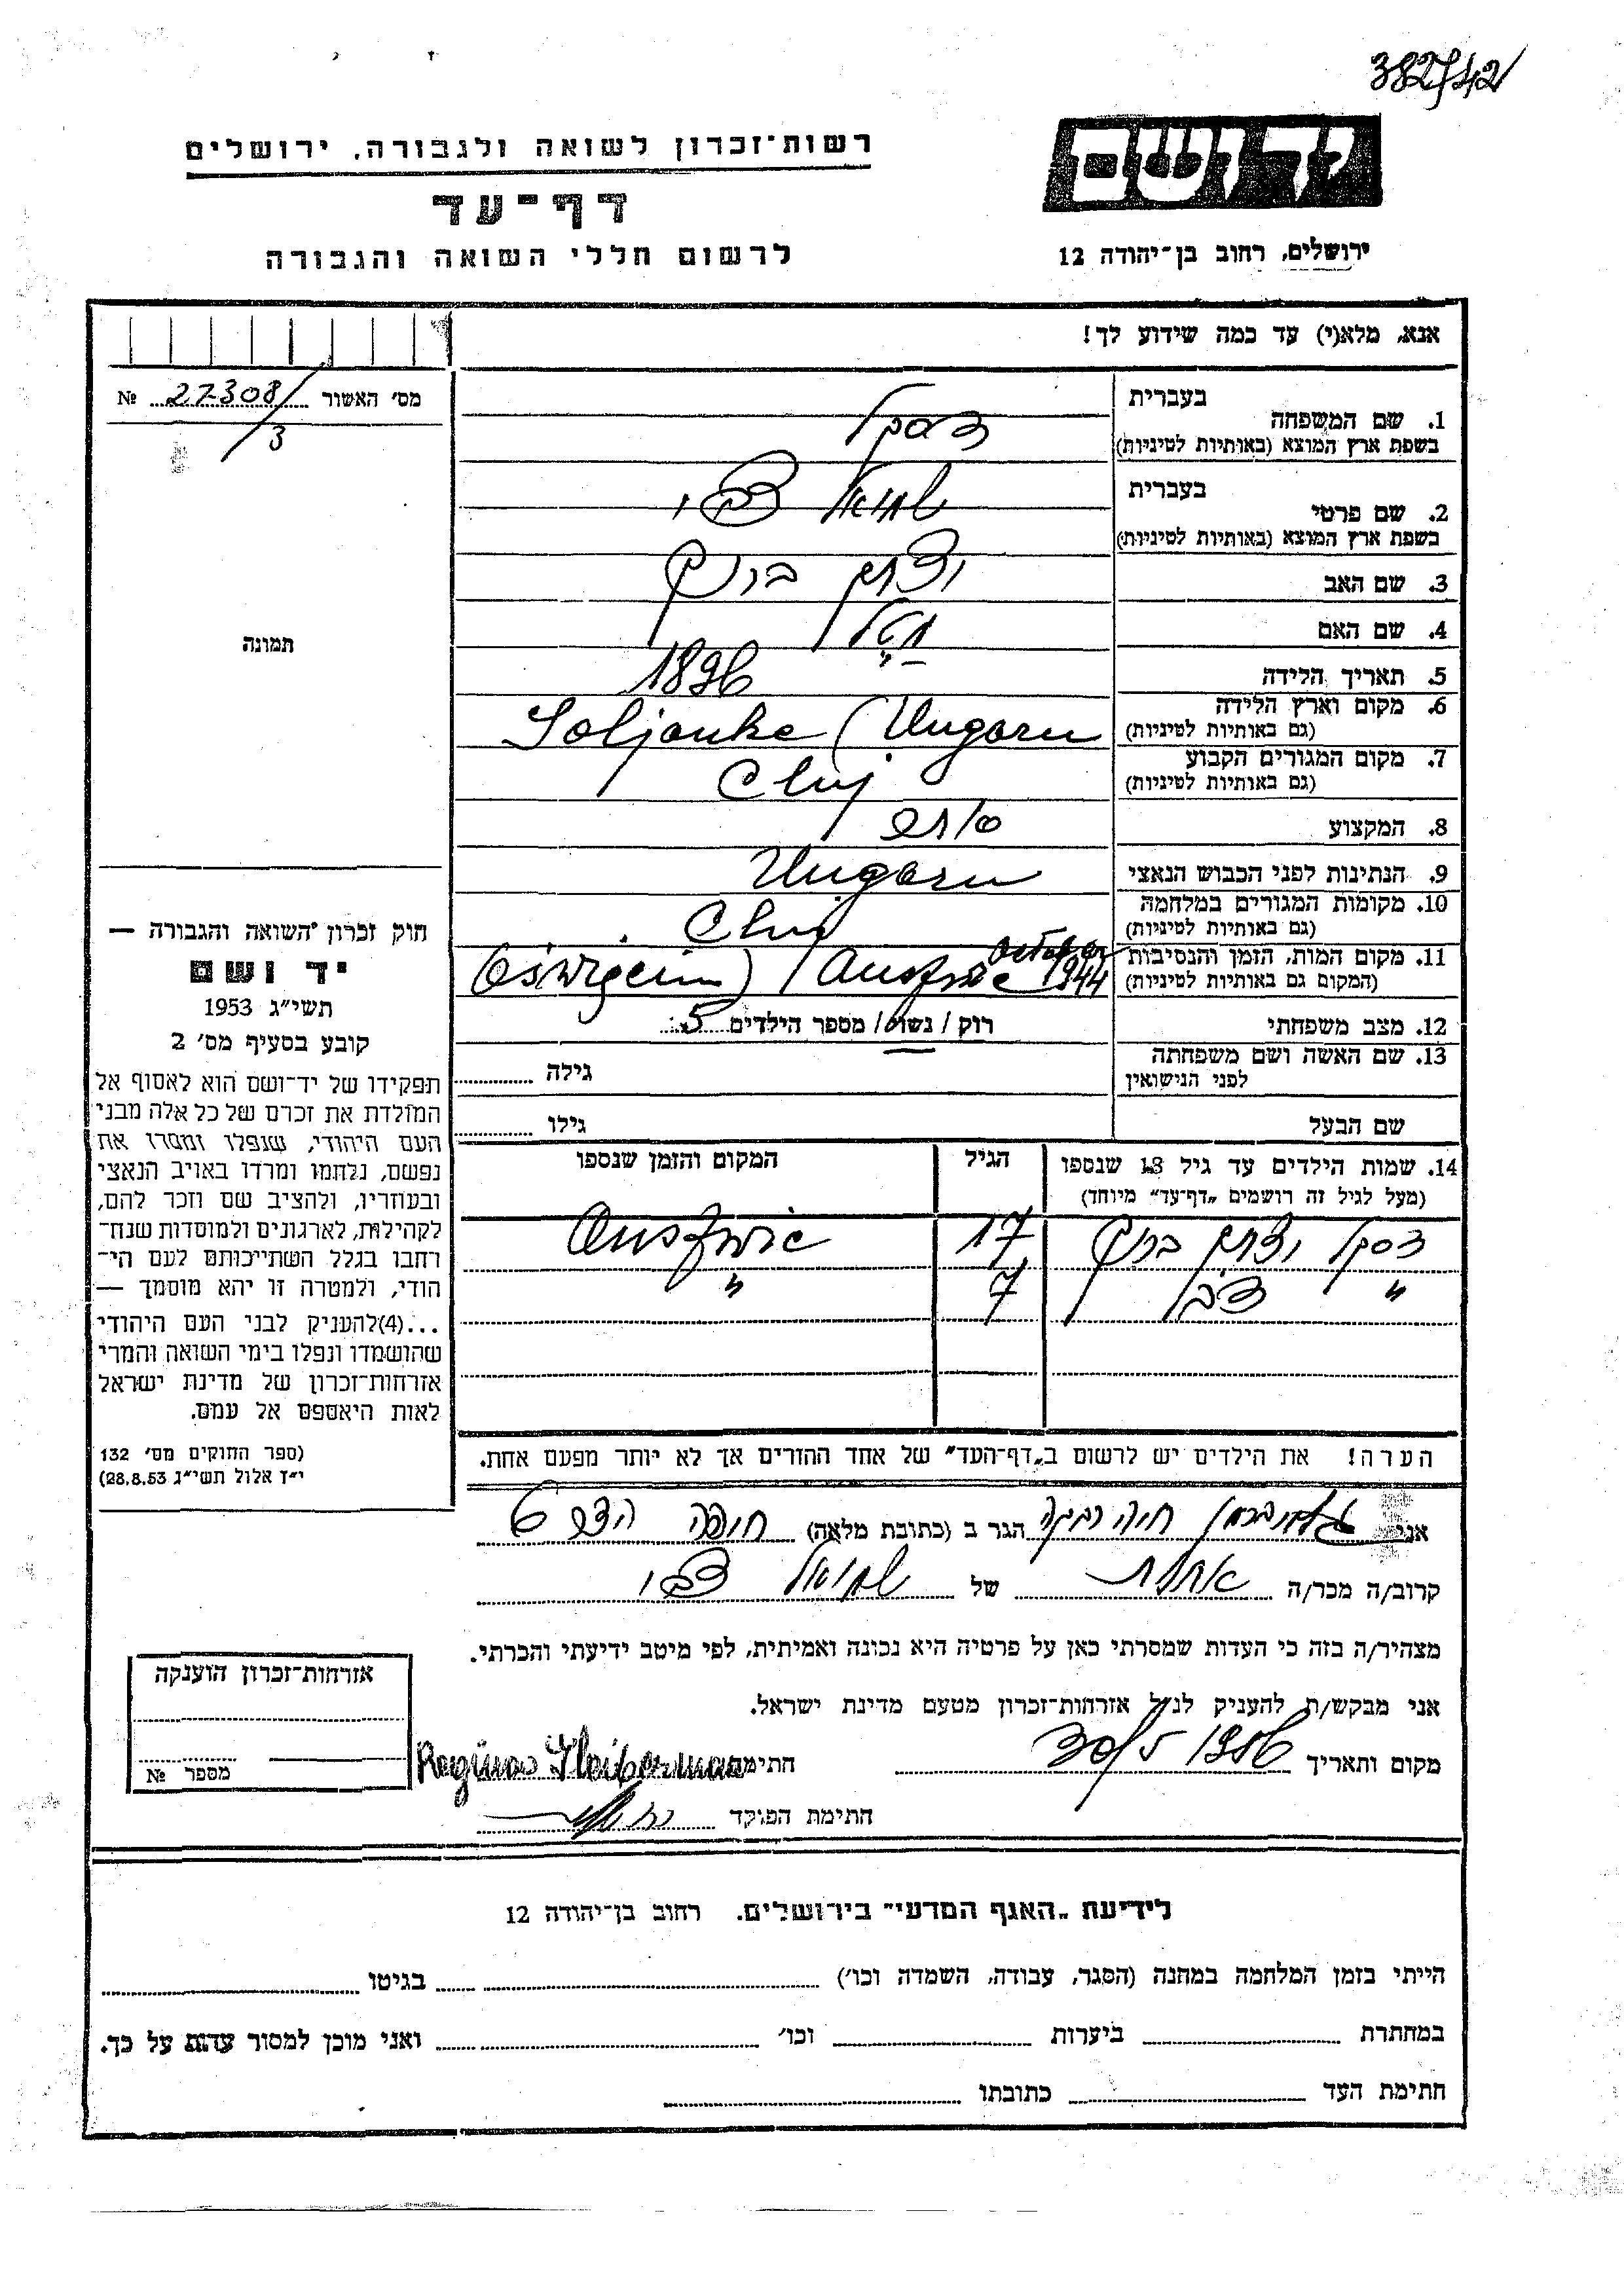 382/42
יד ושם
רשות־זכרון לשואה ולגבורה, ירושלים
דף־עד
לרשום חללי השואה והגבורה
ירושלים, רחוב בן־יהודה 12
אנא, מלא(י) עד כמה שידוע לך!
מס' האשור 27308/3 №
תמונה
חוק זכרון השואה והגבורה —
יד ושם
תשי״ג 1953
קובע בסעיף מס' 2
תפקידו של יד־ושם הוא לאסוף אל
המולדת את זכרם של כל אלה מבני
העם היהודי, שנפלו ומסרו את
נפשם, נלחמו ומרדו באויב הנאצי
ובעוזריו, ולהציב שם וזכר להם,
לקהילות, לארגונים ולמוסדות שנח־
רחבו בגלל השתייכותם לעם הי־
הודי, ולמטרה זו יהא מוסמך —
...(4)להעניק לבני העם היהודי
שהושמדו ונפלו בימי השואה והמרי
אזרחות־זכרון של מדינת ישראל
לאות היאספם אל עמם.
(ספר החוקים מס' 132
י״ז אלול תשי״ג 28.8.53)
בעברית
1. שם המשפחה
בשפת ארץ המוצא (באותיות לטיניות)
בעברית שמואל צבי
2. שם פרטי
בשפת ארץ המוצא (באותיות לטיניות)
3. שם האב יצחק ברוך
4. שם האם
5. תאריך הלידה 1896
6. מקום וארץ הלידה Soljanke (Ungarn
(גם באותיות לטיניות)
7. מקום המגורים הקבוע Cluj
(גם באותיות לטיניות)
8. המקצוע סוחר
9. הנתינות לפני הכבוש הנאצי Ungarn
10. מקומות המגורים במלחמה Cluj
(גם באותיות לטיניות)
11. מקום המות, הזמן והנסיבות October 1944
(המקום גם באותיות לטיניות)
12. מצב משפחתי רוק / נשוי / מספר הילדים 5
13. שם האשה ושם משפחתה
לפני הנישואין גילה
שם הבעל גילו
14. שמות הילדים עד גיל 18 שנספו הגיל המקום והזמן שנספו
(מעל לגיל זה רושמים „דף־עד״ מיוחד)
יצחק ברוך 17
" 7 "
הערה! את הילדים יש לרשום ב„דף־העד״ של אחד ההורים אך לא יותר מפעם אחת.
אני חיה רבקה הגר ב (כתובת מלאה) חיפה
קרוב/ה מכר/ה אחות של שמואל צבי
מצהיר/ה בזה כי העדות שמסרתי כאן על פרטיה היא נכונה ואמיתית, לפי מיטב ידיעתי והכרתי.
אני מבקש/ת להעניק לנ״ל אזרחות־זכרון מטעם מדינת ישראל.
מקום ותאריך חתימה Regina Kleiberman
חתימת הפוקד
אזרחות־זכרון הוענקה
מספר №
לידיעת „האגף המדעי״ בירושלים. רחוב בן־יהודה 12
הייתי בזמן המלחמה במחנה (הסגר, עבודה, השמדה וכו') בגיטו
במחתרת ביערות וכו' ואני מוכן למסור עדות על כך.
חתימת העד כתובתו